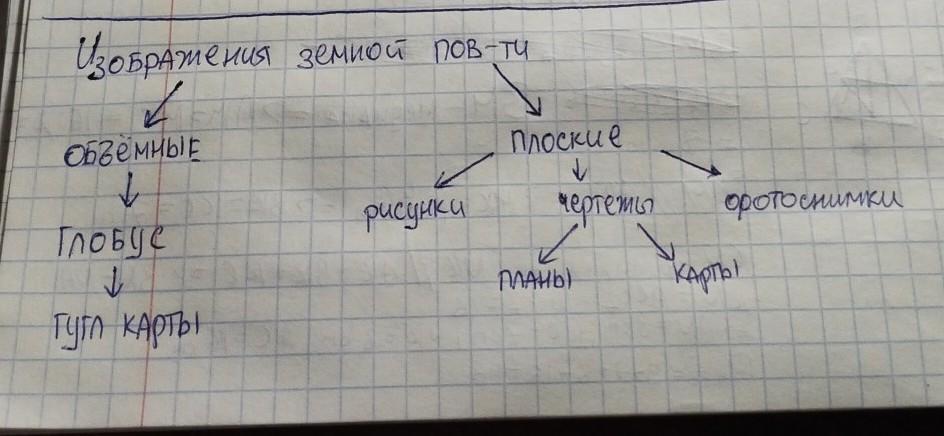 Изображения земной пов-ти
объёмные плоские
рисунки чертежы фотоснимки
глобус
планы карты
гугл карты